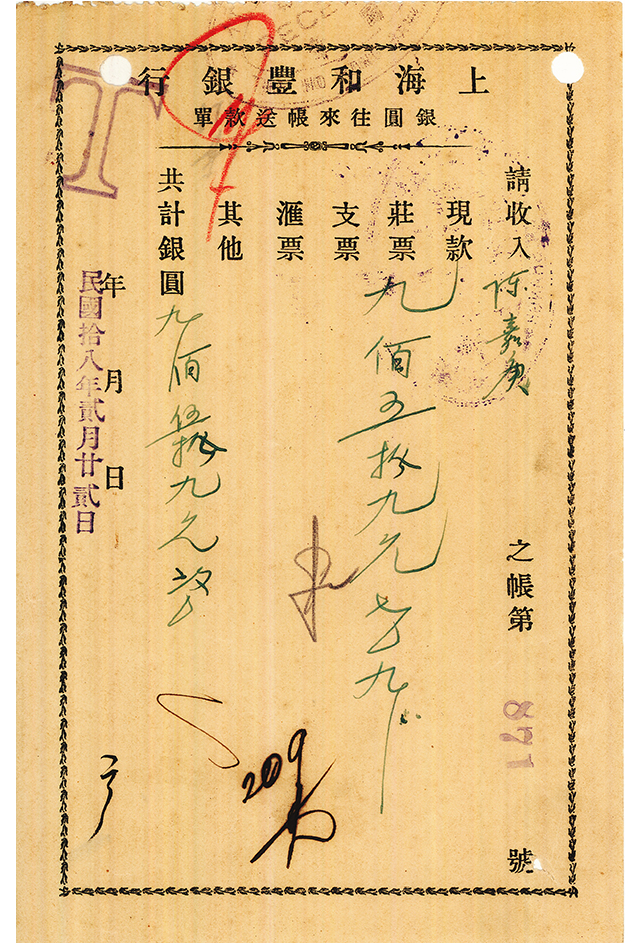 上海和豐銀行
銀圓往來帳送款單
請收入陈嘉庚之帳第871號
現款
莊票 九佰五拾九元
支票
滙票
其他
共計銀圓 九佰伍拾九元
年月日
民國拾八年貳月廿貳日
T
209